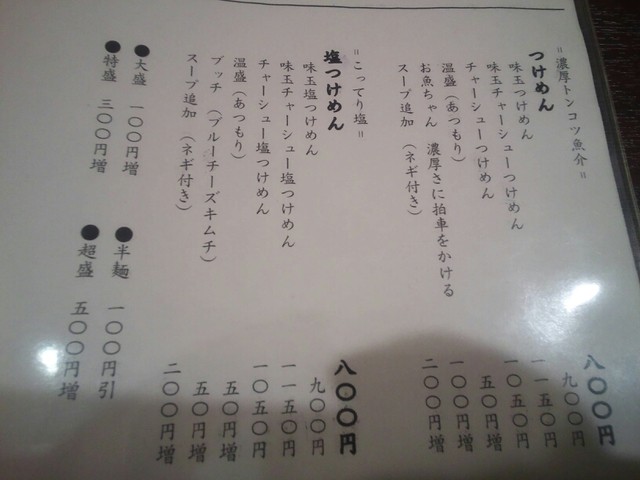 〃濃厚トンコツ魚介〃
つけめん 八〇〇円
味玉つけめん 九〇〇円
味玉チャーシューつけめん 一一五〇円
チャーシューつけめん 一〇五〇円
温盛(あつもり) 五〇円増
お魚ちゃん 濃厚さに拍車をかける 一〇〇円増
スープ追加 (ネギ付き) 二〇〇円増
〃こってり塩〃
塩つけめん 八〇〇円
味玉塩つけめん 九〇〇円
味玉チャーシュー塩つけめん 一一五〇円
チャーシュー塩つけめん 一〇五〇円
温盛(あつもり) 五〇円増
ブッチ (ブルーチーズキムチ) 五〇円増
スープ追加 (ネギ付き) 二〇〇円増
●大盛 一〇〇円増
●特盛 三〇〇円増
●半麺 一〇〇円引
●超盛 五〇〇円増